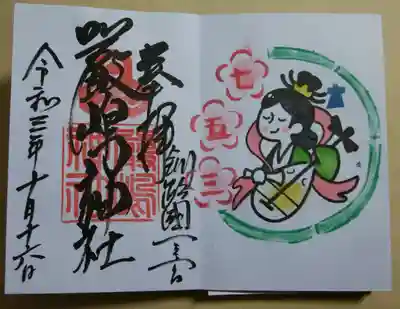 七五三
奉拝
釧路國一之宮
嚴島神社
令和三年十月十六日